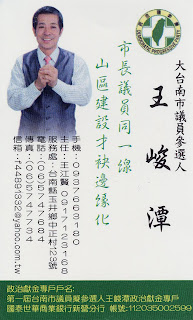 大台南市議員參選人
王峻潭
市長議員同一線
山區建設才袂邊緣化
手機：0937663180
主任：王江賢 0917123168
服務處：台南縣玉井鄉中正村123號
電話：(06)5747684
傳真：(06)5747734
政治獻金專戶戶名：
第一屆台南市議員擬參選人王峻潭政治獻金專戶
國泰世華商業銀行新營分行 帳號：112035002599